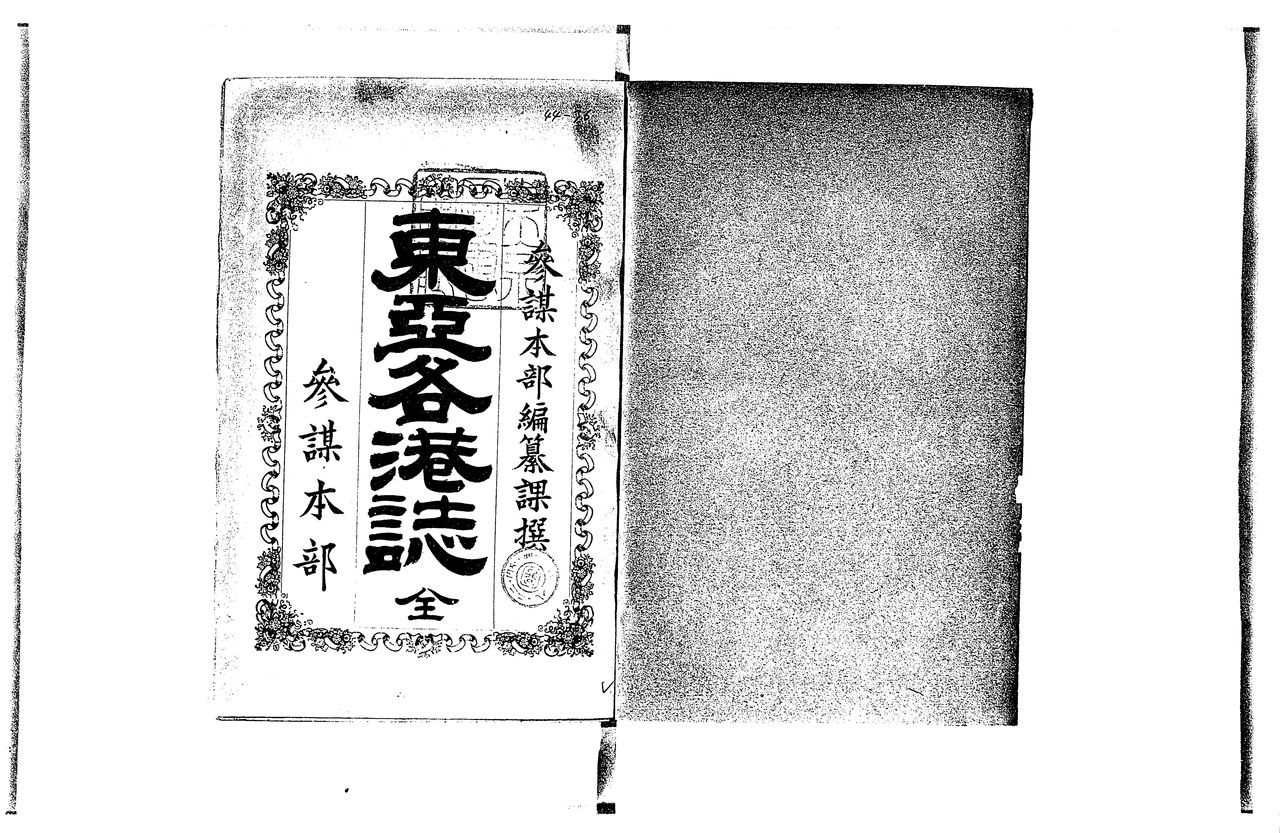 參謀本部編纂課撰
東亞各港誌 全
參謀本部